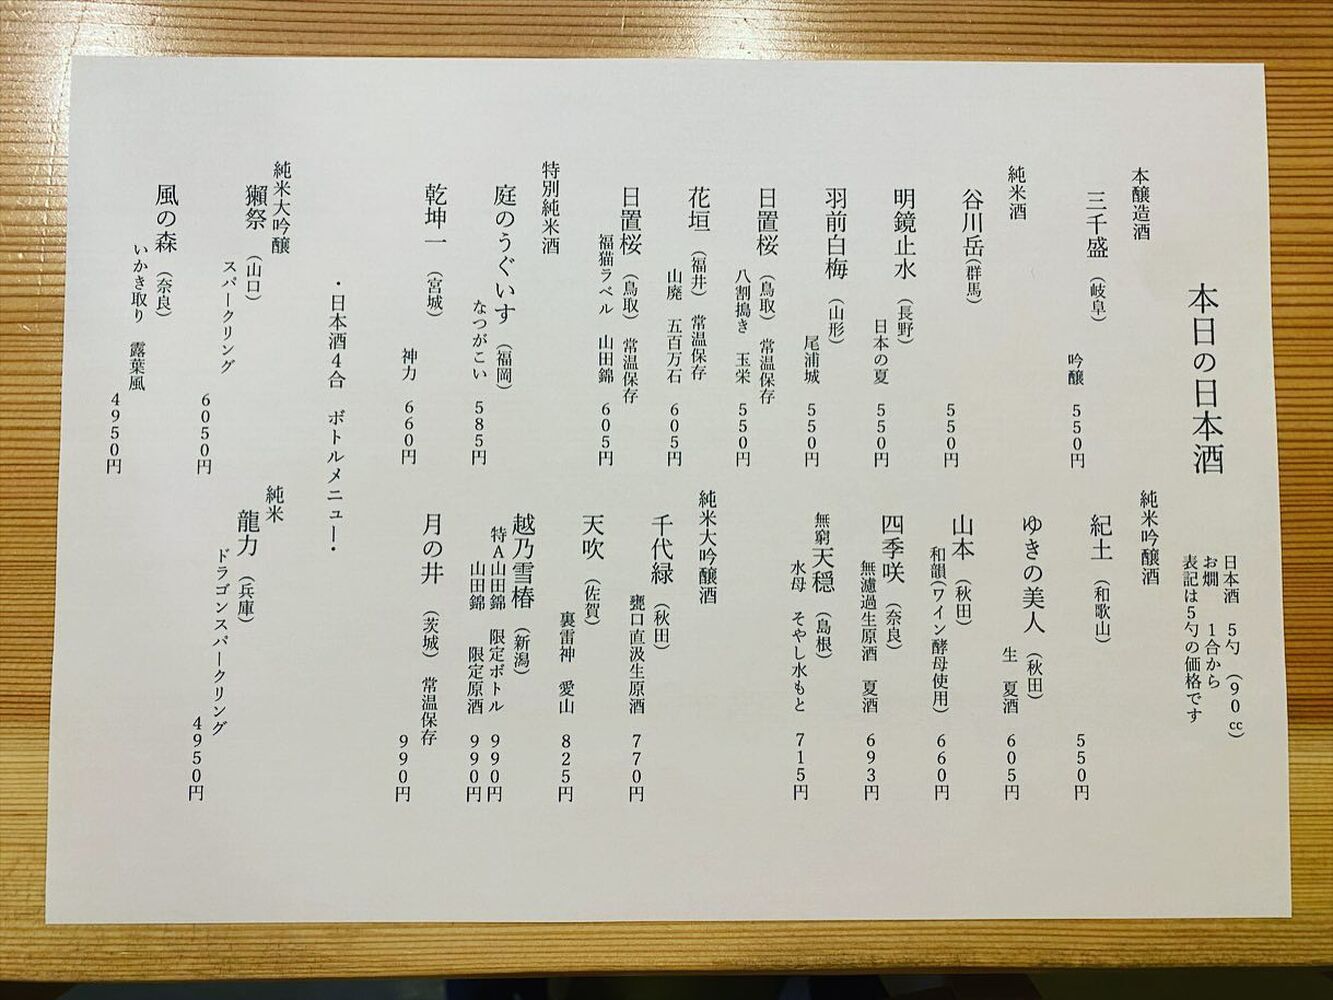 本日の日本酒
日本酒 5勺 (90㏄)
お燗 1合から
表記は5勺の価格です
本醸造酒
三千盛 (岐阜)
吟醸 550円
純米酒
谷川岳(群馬)
550円
明鏡止水 (長野)
日本の夏 550円
羽前白梅 (山形)
尾浦城 550円
日置桜 (鳥取) 常温保存
八割搗き 玉栄 550円
花垣 (福井) 常温保存
山廃 五百万石 605円
日置桜 (鳥取) 常温保存
福猫ラベル 山田錦 605円
特別純米酒
庭のうぐいす (福岡)
なつがこい 585円
乾坤一 (宮城)
神力 660円
純米吟醸酒
紀土 (和歌山)
550円
ゆきの美人 (秋田)
生 夏酒 605円
山本 (秋田)
和韻(ワイン酵母使用) 660円
四季咲 (奈良)
無濾過生原酒 夏酒 693円
無窮天穏 (島根)
水母 そやし水もと 715円
純米大吟醸酒
千代緑 (秋田)
甕口直汲生原酒 770円
天吹 (佐賀)
裏雷神 愛山 825円
越乃雪椿 (新潟)
特A山田錦 限定ボトル 990円
山田錦 限定原酒 990円
月の井 (茨城) 常温保存
990円
・日本酒4合 ボトルメニュー・
純米大吟醸
獺祭 (山口)
スパークリング
6050円
風の森 (奈良)
いかき取り 露葉風
4950円
純米
龍力 (兵庫)
ドラゴンスパークリング
4950円